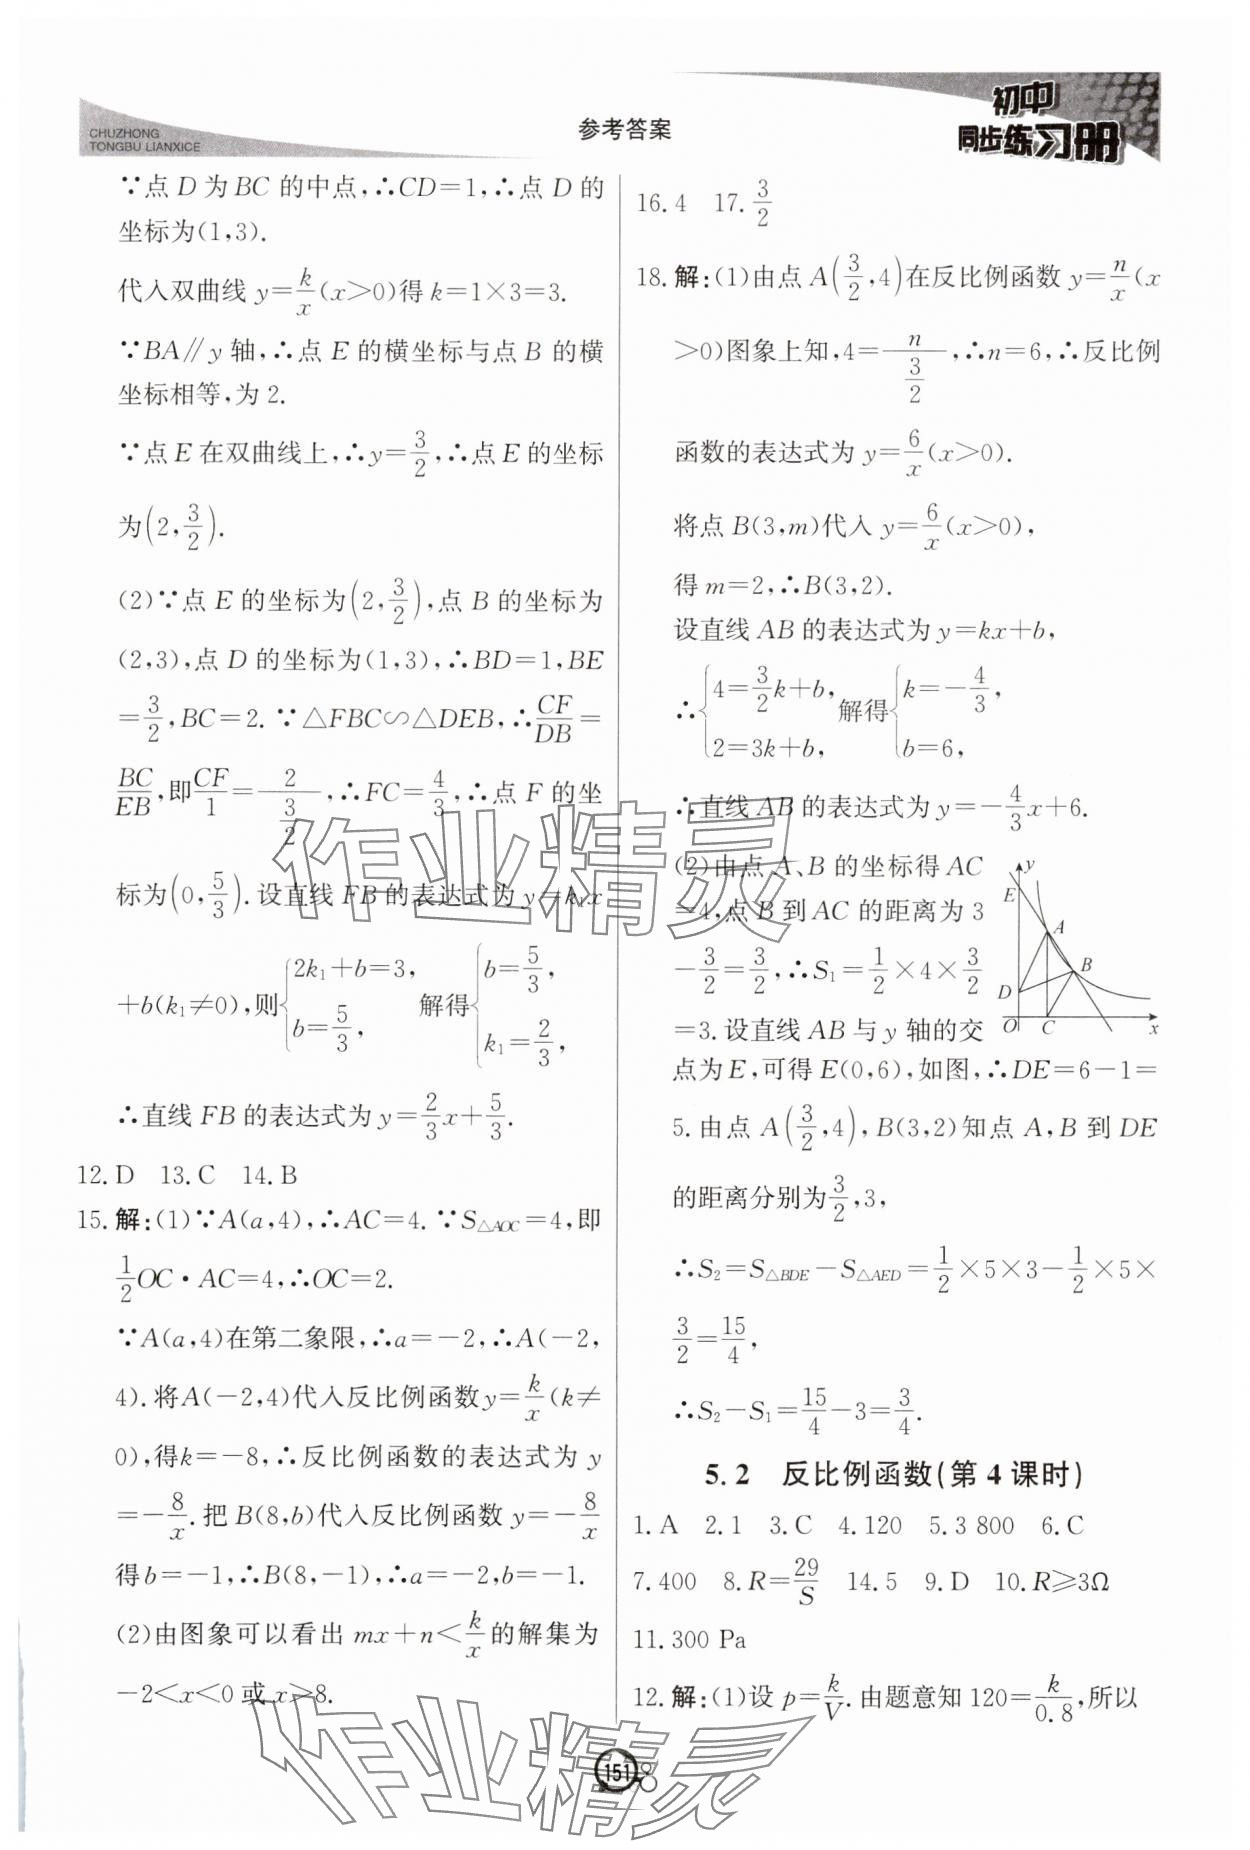 CHUZHONG
TONGBU LIANXICE
参考答案
初中
同步练习册
∵点 D 为 BC 的中点,∴CD=1,∴点 D 的
坐标为(1,3).
代入双曲线 y=k/x(x>0)得 k=1×3=3.
∵BA∥y 轴,∴点 E 的横坐标与点 B 的横
坐标相等,为 2.
∵点 E 在双曲线上,∴y=3/2,∴点 E 的坐标
为(2,3/2).
(2)∵点 E 的坐标为(2,3/2),点 B 的坐标为
(2,3),点 D 的坐标为(1,3),∴BD=1,BE
=3/2,BC=2.∵△FBC∽△DEB,∴CF/DB=
BC/EB,即CF/1=2/(3/2),∴FC=4/3,∴点 F 的坐
标为(0,5/3).设直线 FB 的表达式为 y=k₁x
+b(k₁≠0),则{2k₁+b=3, b=5/3, 解得{b=5/3, k₁=2/3,
∴直线 FB 的表达式为 y=2/3x+5/3.
12.D 13.C 14.B
15.解:(1)∵A(a,4),∴AC=4.∵S△AOC=4,即
1/2OC·AC=4,∴OC=2.
∵A(a,4)在第二象限,∴a=-2,∴A(-2,
4).将A(-2,4)代入反比例函数y=k/x(k≠
0),得k=-8,∴反比例函数的表达式为 y
=-8/x.把 B(8,b)代入反比例函数 y=-8/x
得b=-1,∴B(8,-1),∴a=-2,b=-1.
(2)由图象可以看出 mx+n<k/x的解集为
-2<x<0 或 x>8.
16.4 17.3/2
18.解:(1)由点 A(3/2,4)在反比例函数 y=n/x(x
>0)图象上知,4=n/(3/2),∴n=6,∴反比例
函数的表达式为 y=6/x(x>0).
将点 B(3,m)代入 y=6/x(x>0),
得 m=2,∴B(3,2).
设直线 AB 的表达式为 y=kx+b,
∴{4=3/2k+b, 2=3k+b, 解得{k=-4/3, b=6,
∴直线 AB 的表达式为 y=-4/3x+6.
(2)由点 A、B 的坐标得 AC
=4,点 B 到 AC 的距离为 3
-3/2=3/2,∴S₁=1/2×4×3/2
=3.设直线 AB 与 y 轴的交
y
E
A
B
D
O
C
x
点为 E,可得 E(0,6),如图,∴DE=6-1=
5.由点 A(3/2,4),B(3,2)知点 A,B 到 DE
的距离分别为3/2,3,
∴S₂=S△BDE-S△AED=1/2×5×3-1/2×5×
3/2=15/4,
∴S₂-S₁=15/4-3=3/4.
5.2 反比例函数(第 4 课时)
1.A 2.1 3.C 4.120 5.3 800 6.C
7.400 8.R=29/S 14.5 9.D 10.R≥3Ω
11.300 Pa
12.解:(1)设 p=k/V.由题意知 120=k/0.8,所以
151
作业精灵
作业精灵